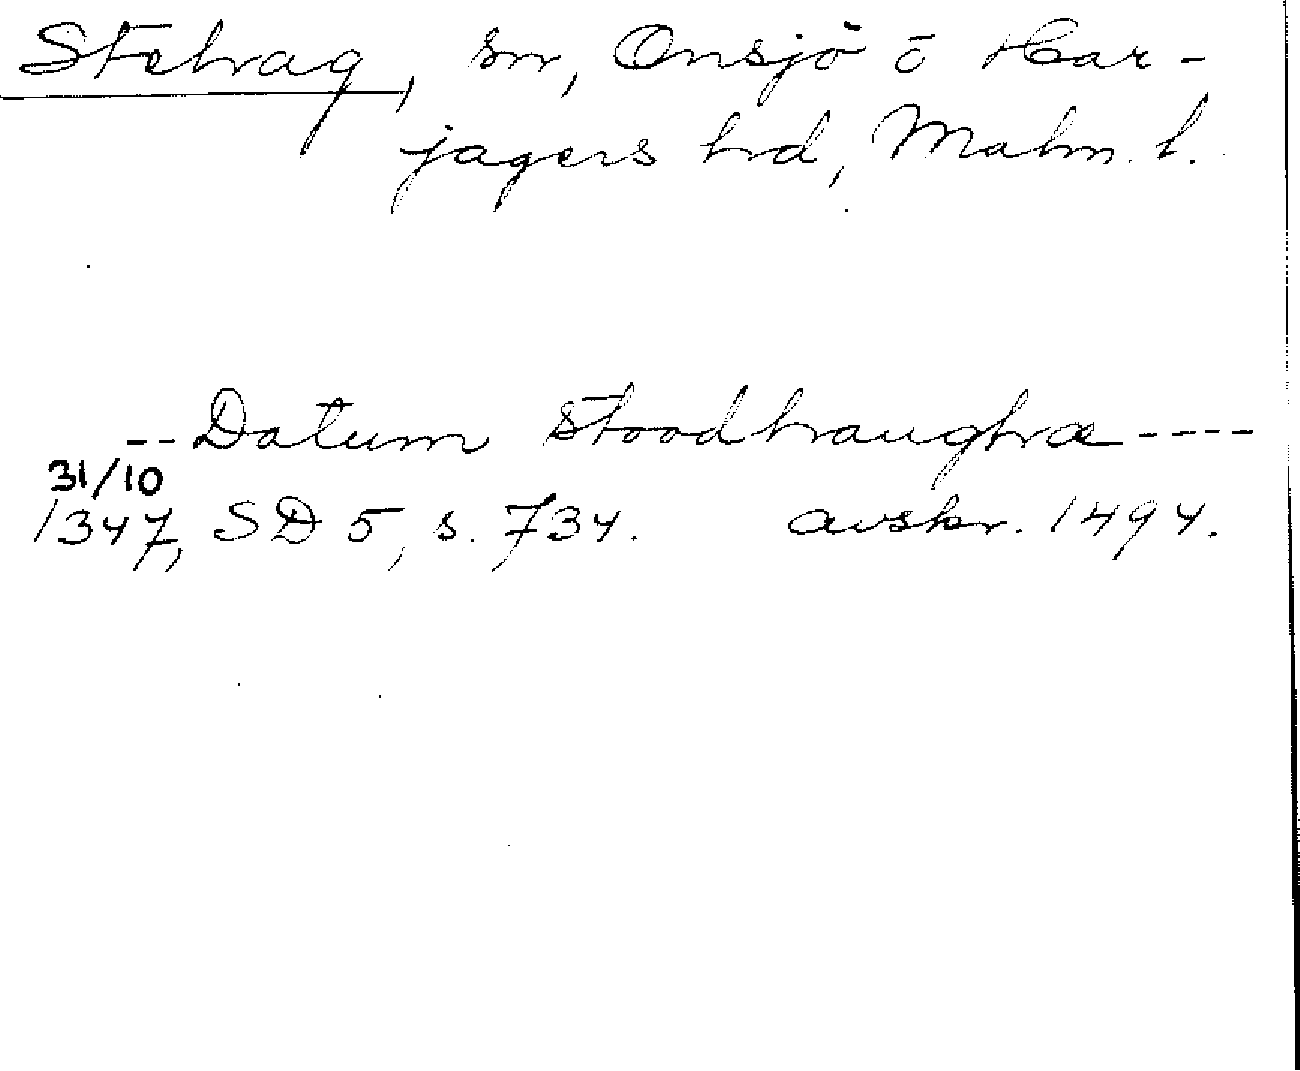 Stehag, sn, Onsjö o Har-
jagers hd, Malm. l.
-- Datum stoodhaughæ ----
31/10
1347, SD 5, s. 734. avskr. 1494.